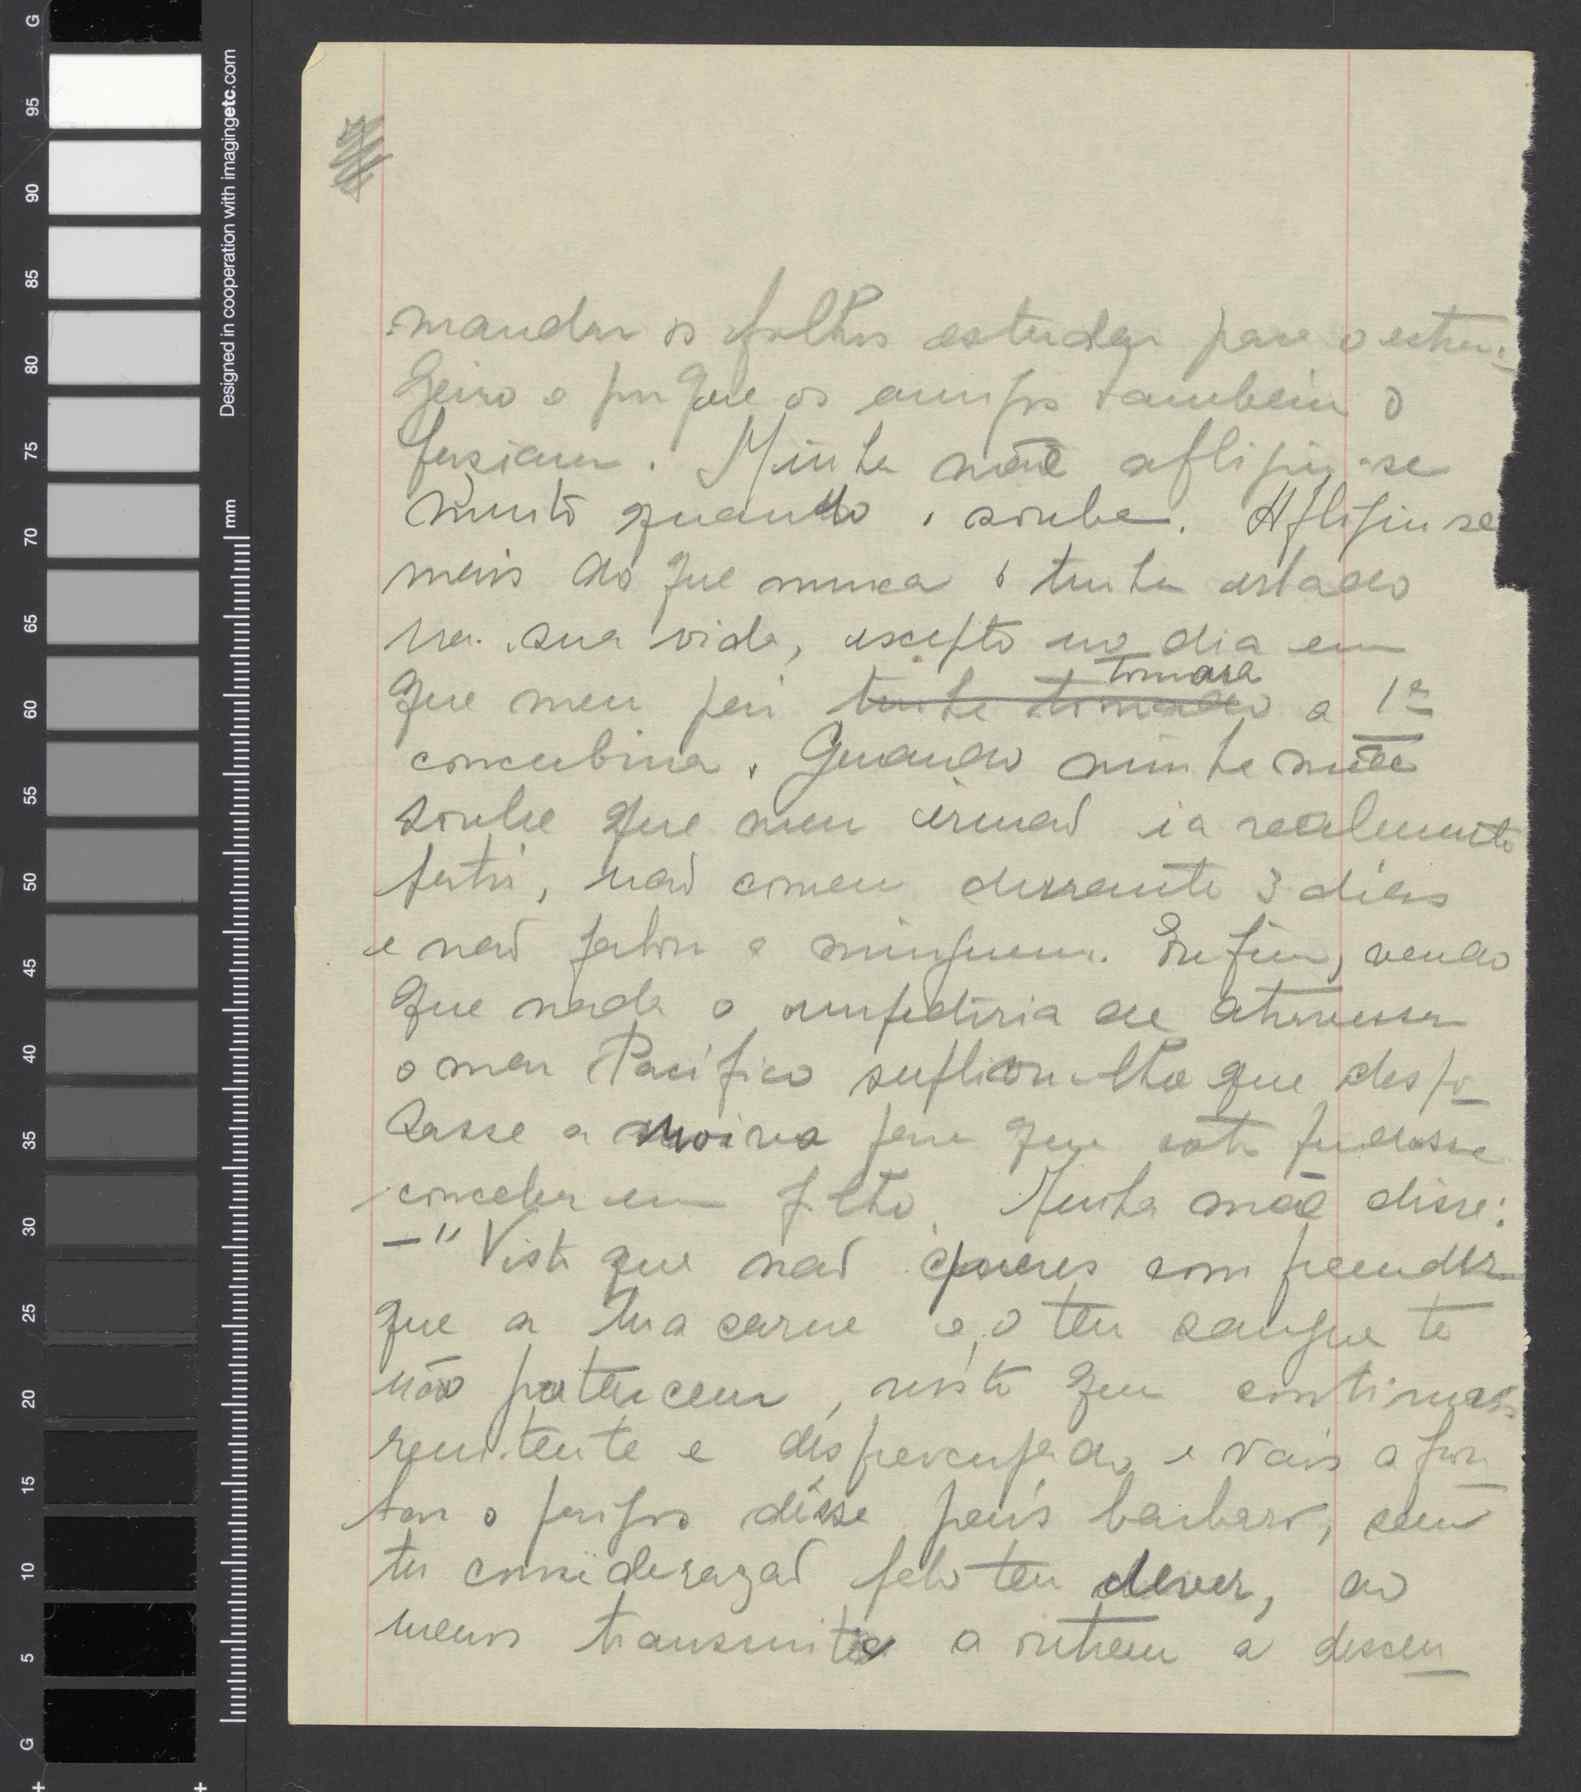 mandar os filhos estudar para o estran-
geiro e porque os amigos tambem o
fasiam. Minha mãe afligiu-se
muito quando o soube. Afligiu se
mais do que nunca o tinha estado
na sua vida, excepto no dia em
que meu pai tinha tomado tomara a 1ª
concubina. Quando minha mãe
soube que meu irmaõ ia realmente
partir, naõ comeu durrante 3 dias
e naõ falou a ninguem. Enfim, vendo
que nada o impediria de atravessar
o mar Pacifico suplicou-lhe que despo
sasse a noiva para que esta pudesse
conceber um filho. Minha mãe disse:
—"Visto que naõ queres compreender
que a tua carne e o teu sangue te
não pertencem, visto que continuas
renitente e despreocupado e vais afron
tar o perigo désse país barbaro, sem
ter consideraçaõ pelo teu dever, ao
menos transmite a outrem a descen
G 95 90 85 80 75 70 65 60 55 50 45 40 35 30 25 20 15 10 5 G
Designed in cooperation with imagingetc.com
mm